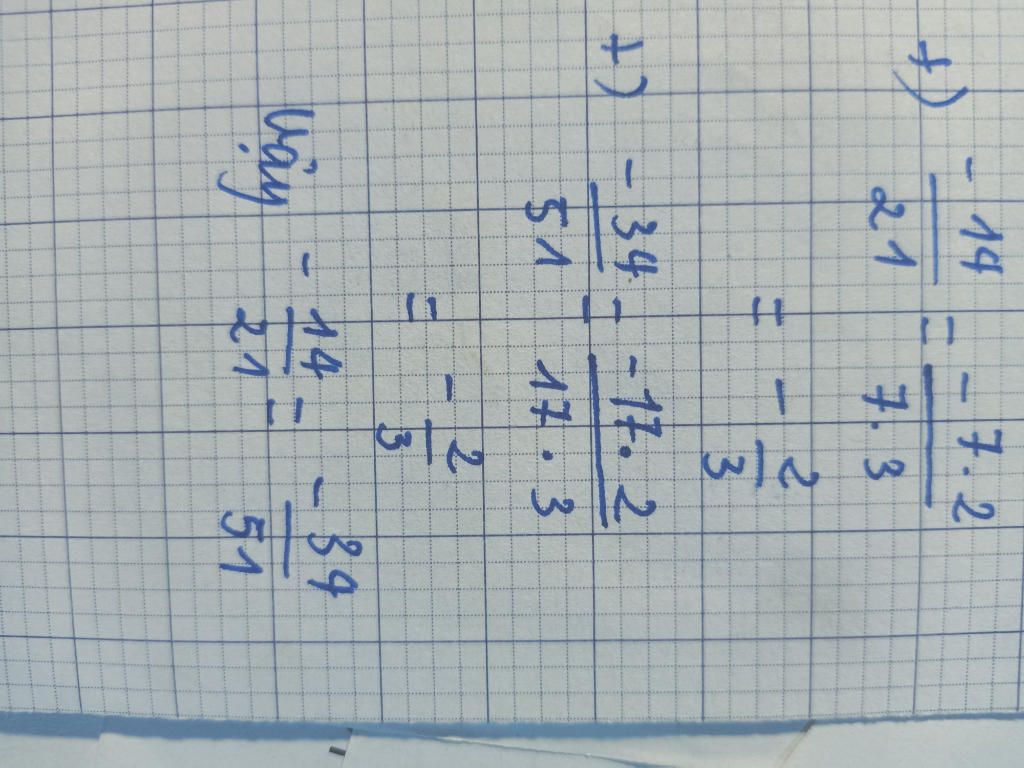 +) -14/21 = -7.2/7.3
= -2/3
+) -34/51 = -17.2/17.3
= -2/3
Vậy -14/21 = -34/51